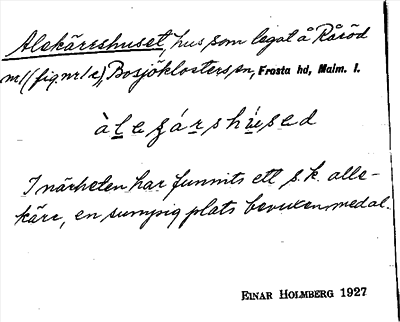 Alekärrshuset, hus som legat å Råröd
m/1 (fig nr 1 c), Bosjöklosters sn, Frosta hd, Malm. l.
àlesárshúsed
I närheten har funnits ett s.k. alle-
kärr, en sumpig plats bevuxen med al.
EINAR HOLMBERG 1927